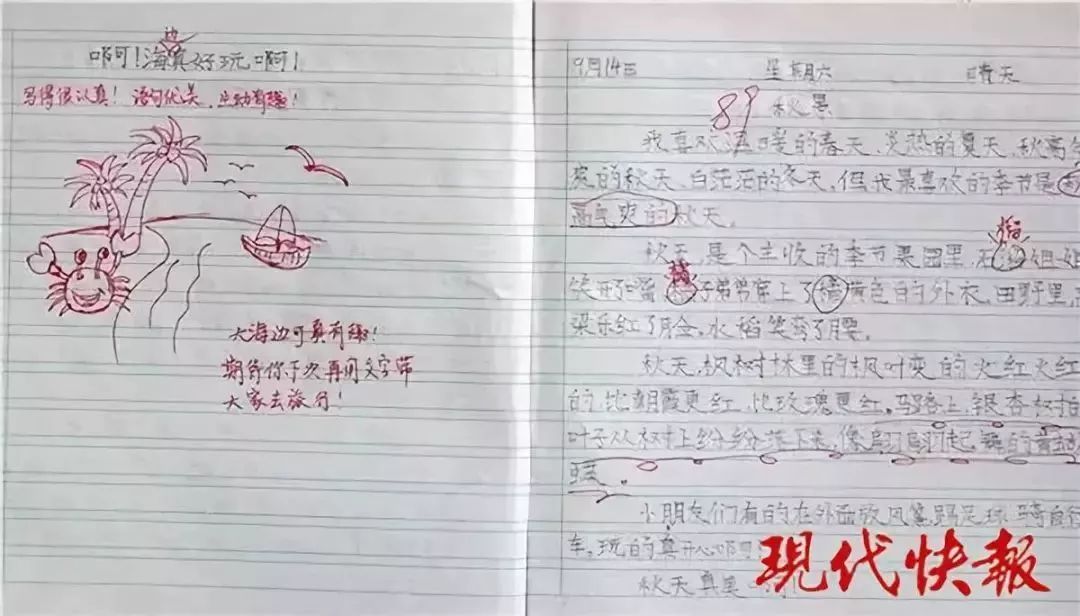 啊！海真好玩啊！
边
写得很认真！语句优美，生动有趣！
大海边可真有趣！
期待你下次再用文字带
大家去旅行！
9月14日 星期六 晴天
89 秋景
我喜欢温暖的春天、炎热的夏天、秋高气
爽的秋天、白茫茫的冬天，但我最喜欢的季节是
高气爽的秋天。
秋天是个丰收的季节果园里，石 姐姐
笑开了嘴 子弟弟穿上了橘黄色的外衣，田野里，
梁乐红了脸，水稻笑弯了腰。
秋天，枫树林里的枫叶变的火红火红
的，比朝霞更红，比玫瑰更红。马路上，银杏树的
叶子从树上纷纷落下来，像翩翩起舞的黄
小朋友们有的在外面放风筝、踢足球、骑自行
车，玩的真开心啊！
秋天真美
现代快報